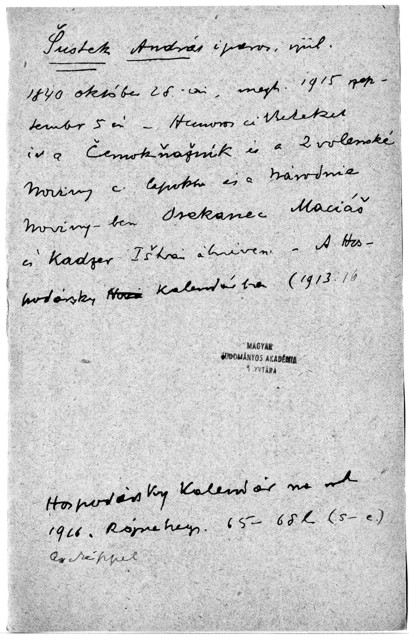 Šustek András iparos, szül.
1840 október 28-án, megh. 1915 szep-
tember 5én – Humoros cikkeket
ír a Černokňažník és a Zvolenské
Noviny c. lapokba és a Národnie
Noviny-ben Maciáš
és Kadzer Ištvan álnéven. – A Hos-
podársky Kalendárba (1913:16
MAGYAR
TUDOMÁNYOS AKADÉMIA
KÖNYVTÁRA
Hospodársky Kalendár na rok
1916. Rózsahegy. 65–68 l. (S–c.)
Arcképpel